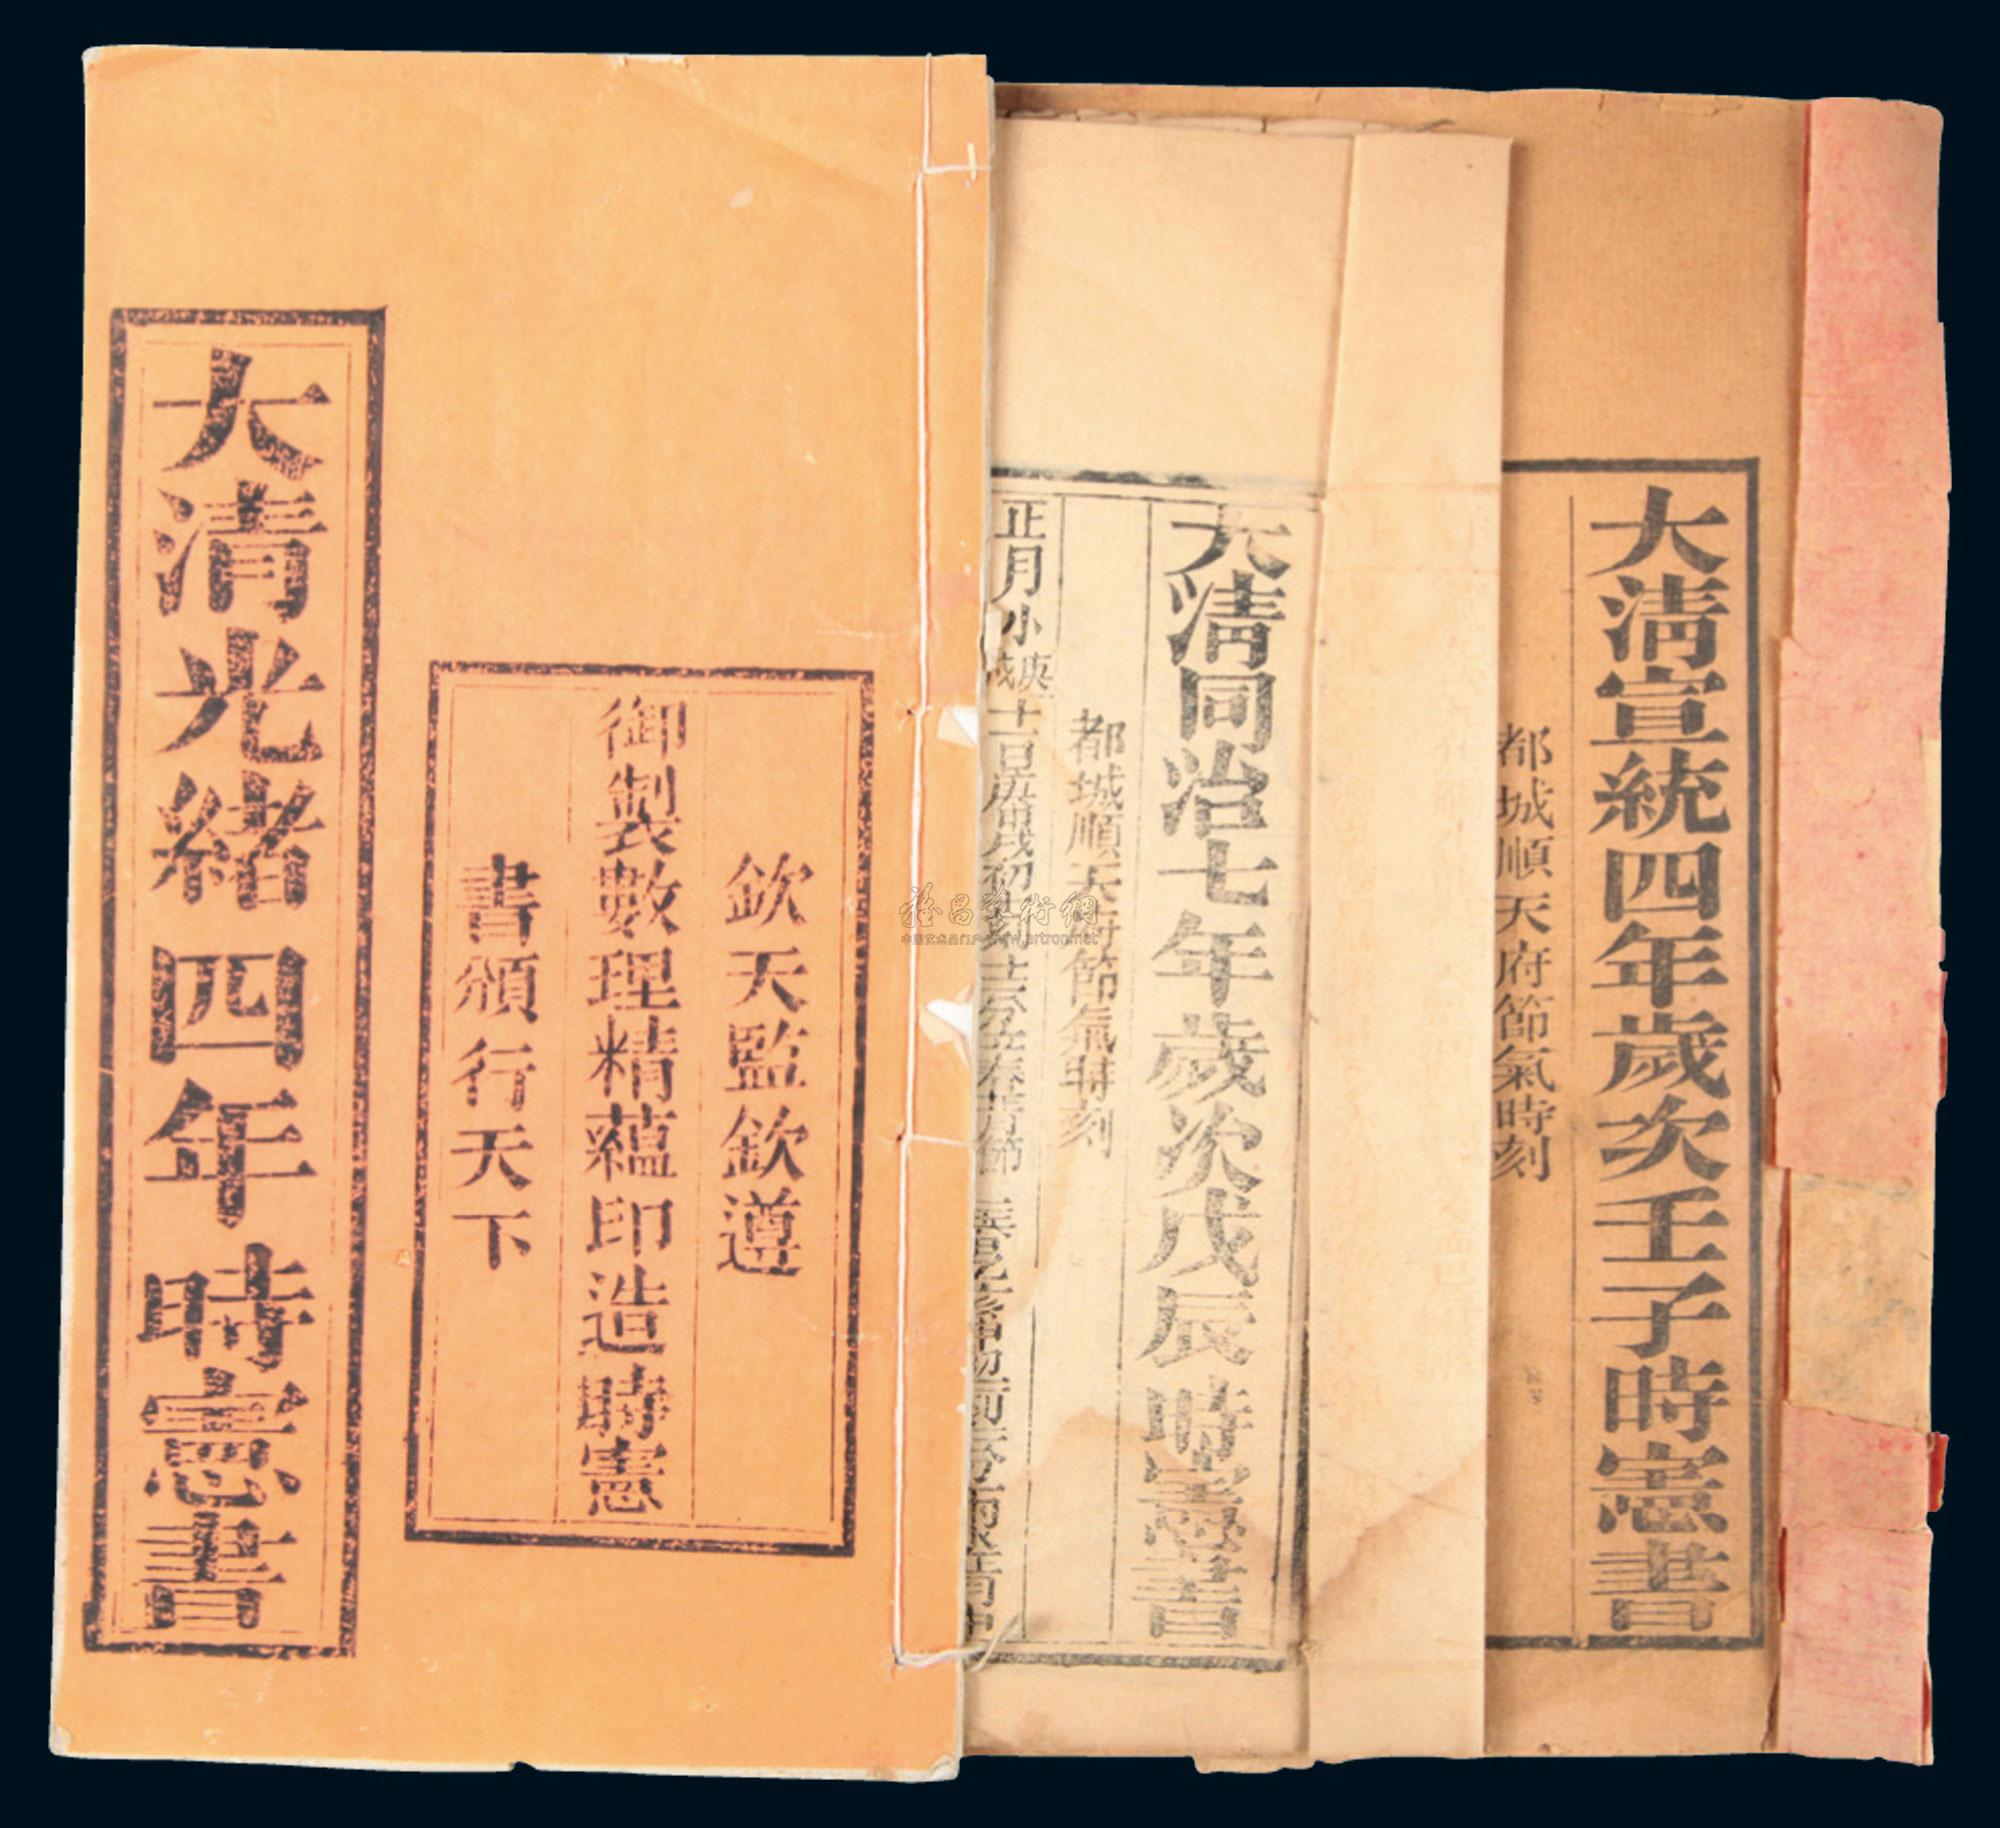 大清宣統四年歲次壬子時憲書
都城順天府節氣時刻
大清同治七年歲次戊辰時憲書
都城順天府節氣時刻
正月小
欽天監欽遵
御製數理精蘊印造時憲
書頒行天下
大清光緒四年時憲書
雅昌藝術網
中国艺术品门户 www.artron.net